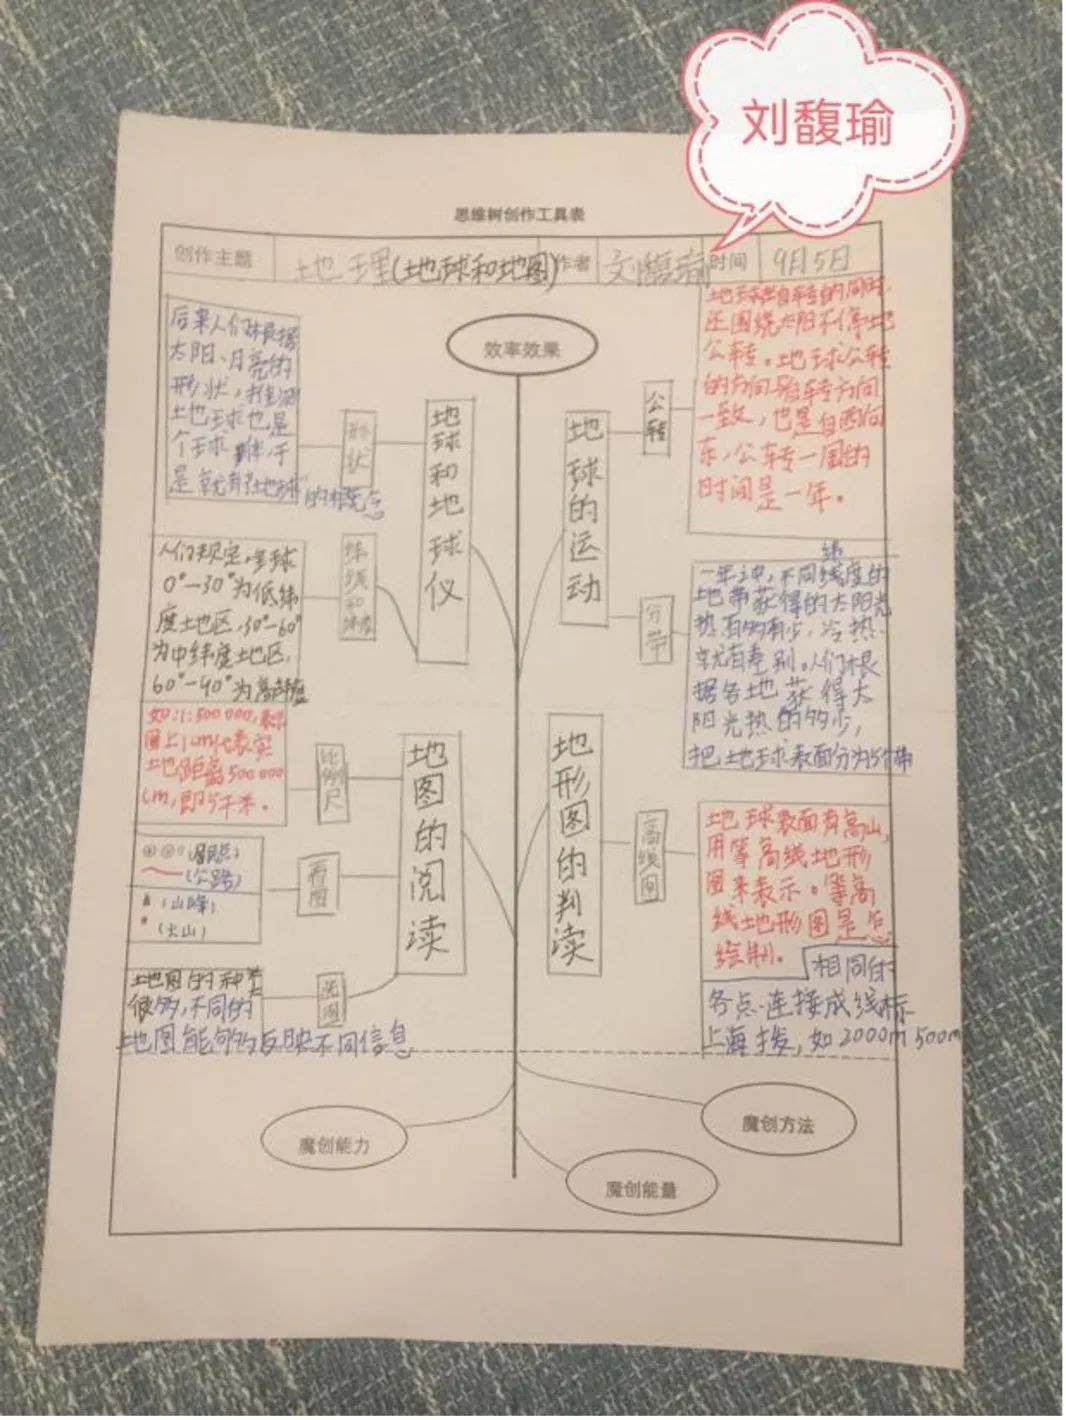 刘馥瑜
思维树创作工具表
创作主题
地理(地球和地图)
作者
刘馥瑜
时间
9月5日
效率效果
地球和地球仪
形状
后来人们根据
太阳、月亮的
形状,推测
土地球也是
个球体,于
是就有了"地球"的概念
纬线和纬度
人们规定,
0°—30°为低纬
度土地区,30°—60°
为中纬度土地区,
60°—90°为高纬度
地图的阅读
比例尺
如:1:500000,表示
图上1cm代表实
土地距离500000
cm,即5千米。
看图
(居民点)
(公路)
(山峰)
(火山)
地图的种类
很多,不同的
地图能够反映不同信息
地球的运动
公转
地球在自转的同时,
还围绕太阳不停地
公转。地球公转
的方向与自转方向
一致,也是自西向
东,公转一周的
时间是一年。
分带
一年之中,不同纬度的
地带获得的太阳光
热有多有少,冷热
就有差别。人们根
据各地获得太
阳光热的多少,
把土地球表面分为5个带
地形图的判读
高线图
地球表面有高山,
用等高线地形
图来表示。等高
线地形图是怎
绘制。
相同的
各点连接成线标
上海拔,如2000m 500m
魔创能力
魔创方法
魔创能量